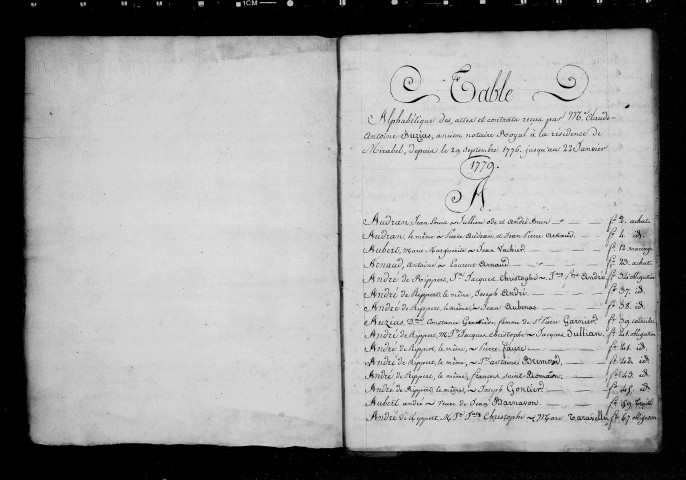 Table
Alphabétique des actes et contrats reçus par Me. Claude-
Antoine Auzias, ancien notaire Royal à la résidence de
Mirabel, depuis le 29 septembre 1776. jusqu'au 22 Janvier
1779.
A
Audran, Jean Louis à Jullian et André Brun fo. 2. achat.
Audran, le même à Pierre Audran et Jean Pierre Arnaud fo. 4. id.
Aubert, Marie Marguerite à Jean fo. 12. mariage
Arnaud, Antoine à Laurent Arnaud fo. 23. achat.
André de Rippert, Jacques Christophe à André fo. 36 obligation
André de Rippert, le même, Joseph André fo. 37. id.
André de Rippert, le même, à Jean Aubmas fo. 38. id.
Auzias, Dlle. Constance femme de Sr. Pierre Garnier fo. 39
André de Rippert, M. Jn. Jacques Christophe à Jacques Jullian fo. obligation
André de Rippert, le même, à Pierre Faure fo. id.
André de Rippert, le même, à Antoine Brémond fo. 42. id.
André de Rippert, le même, françois saint-Romain fo. 43. id.
André de Rippert, le même, à Joseph Gontier fo. 45. id.
Aubert andré à Veuve de Jean Barnavon fo. 59.
André de Rippert, M. Jn. Christophe à Marc Taravelle fo. 67. obligation